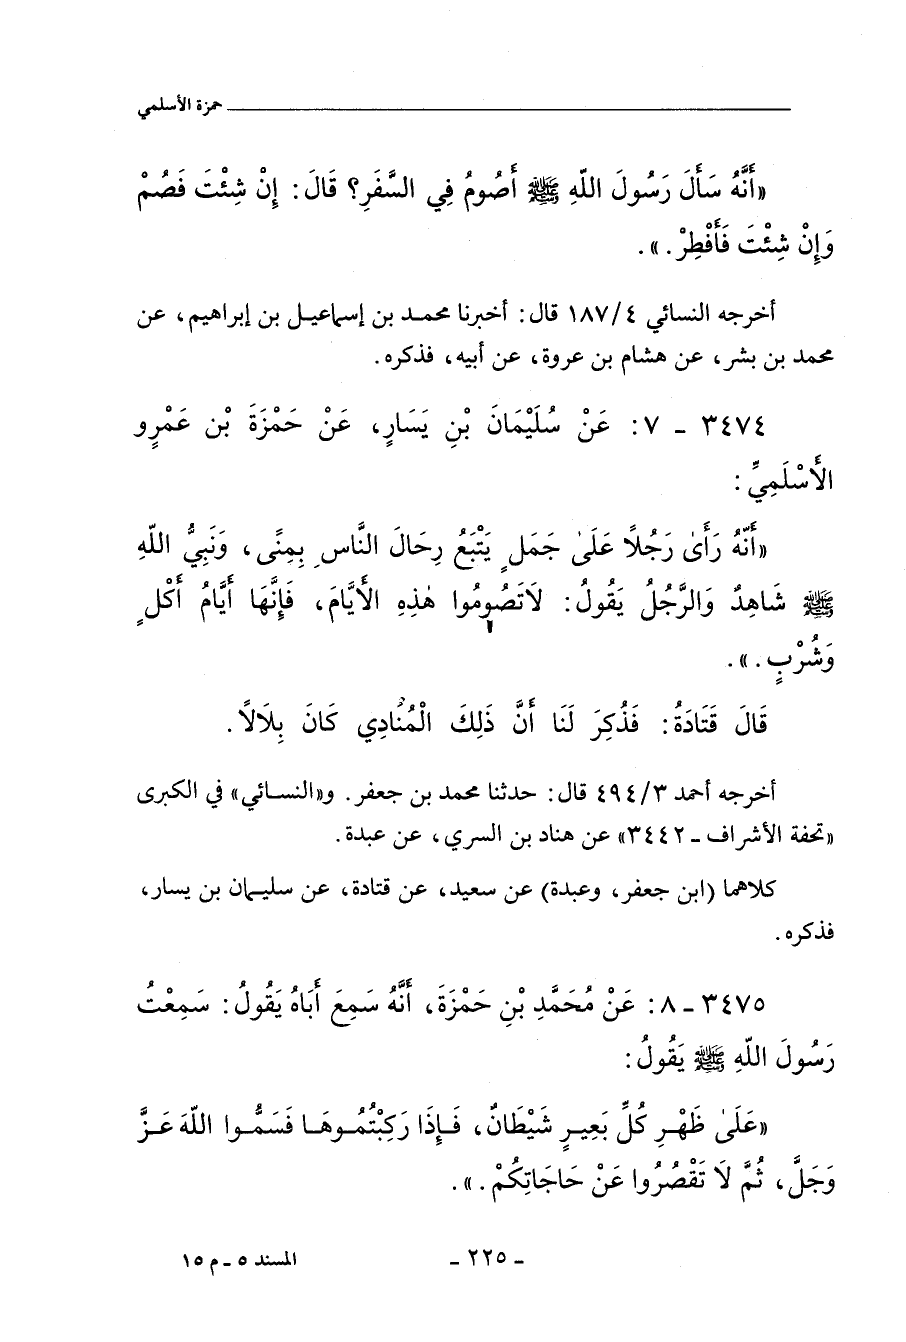 حمزة الأسلمي
«أَنَّهُ سَأَلَ رَسُولَ اللّهِ ﷺ أَصُومُ فِي السَّفَرِ؟ قَالَ: إِنْ شِئْتَ فَصُمْ
وَإِنْ شِئْتَ فَأَفْطِرْ.».
أخرجه النسائي ٤/١٨٧ قال: أخبرنا محمد بن إسماعيل بن إبراهيم، عن
محمد بن بشر، عن هشام بن عروة، عن أبيه، فذكره.
٣٤٧٤ - ٧: عَنْ سُلَيْمَانَ بْنِ يَسَارٍ، عَنْ حَمْزَةَ بْن عَمْرٍو
الأَسْلَمِيِّ:
«أَنَّهُ رَأَىٰ رَجُلًا عَلَىٰ جَمَلٍ يَتْبَعُ رِحَالَ النَّاسِ بِمِنًى، وَنَبِيُّ اللّهِ
ﷺ شَاهِدٌ وَالرَّجُلُ يَقُولُ: لَاتَصُومُوا هٰذِهِ الأَيَّامَ، فَإِنَّهَا أَيَّامُ أَكْلٍ
وَشُرْبٍ.».
قَالَ قَتَادَةُ: فَذُكِرَ لَنَا أَنَّ ذَلِكَ الْمُنَادِي كَانَ بِلَالًا.
أخرجه أحمد ٣/٤٩٤ قال: حدثنا محمد بن جعفر. و«النسائي» في الكبرى
«تحفة الأشراف - ٣٤٤٢» عن هناد بن السري، عن عبدة.
كلاهما (ابن جعفر، وعبدة) عن سعيد، عن قتادة، عن سليمان بن يسار،
فذكره.
٣٤٧٥ - ٨: عَنْ مُحَمَّدِ بْنِ حَمْزَةَ، أَنَّهُ سَمِعَ أَبَاهُ يَقُولُ: سَمِعْتُ
رَسُولَ اللّهِ ﷺ يَقُولُ:
«عَلَىٰ ظَهْرِ كُلِّ بَعِيرٍ شَيْطَانٌ، فَإِذَا رَكِبْتُمُوهَا فَسَمُّوا اللّهَ عَزَّ
وَجَلَّ، ثُمَّ لَا تَقْصُرُوا عَنْ حَاجَاتِكُمْ.».
- ٢٢٥ -
المسند ٥ - م ١٥